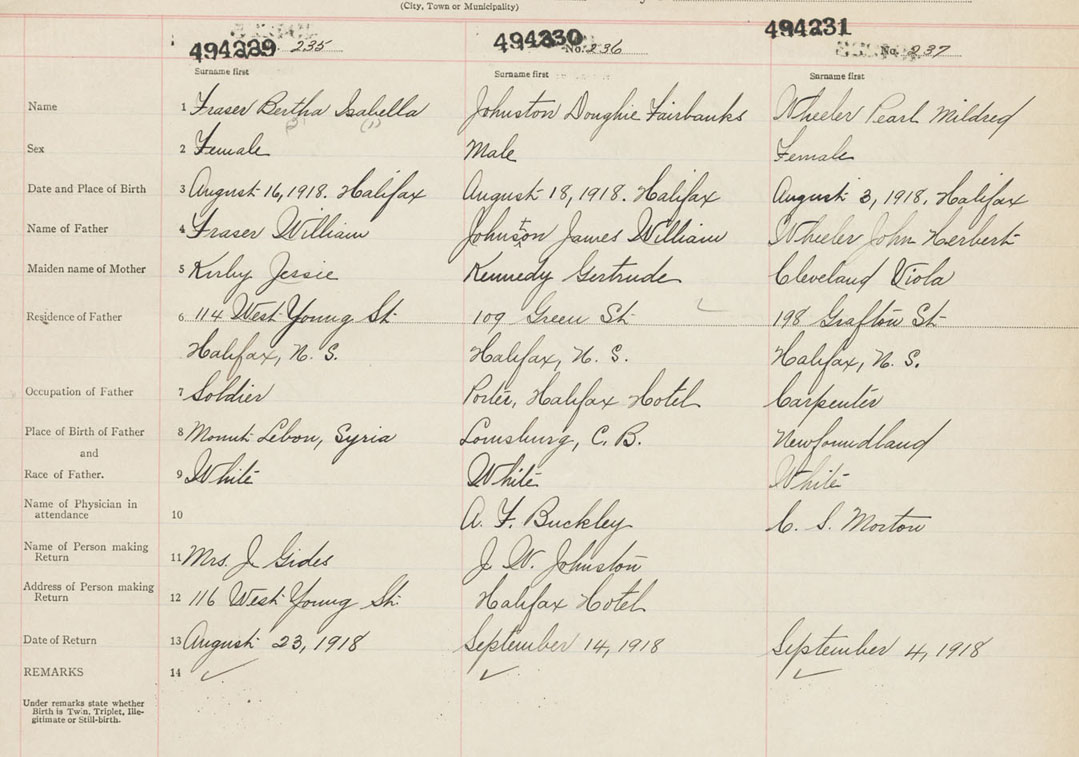 (City, Town or Municipality)
494229 235 494230 No. 236 494231 No. 237
Surname first Surname first Surname first
Name 1 Fraser Bertha Isabella Johnston Doughie Fairbanks Wheeler Pearl Mildred
(2) (1)
Sex 2 Female Male Female
Date and Place of Birth 3 August 16, 1918. Halifax August 18, 1918. Halifax August 3, 1918. Halifax
Name of Father 4 Fraser William Johnston James William Wheeler John Herbert
Maiden name of Mother 5 Kirby Jessie Kennedy Gertrude Cleveland Viola
Residence of Father 6 114 West Young St. 109 Green St. 198 Grafton St.
Halifax, N. S. Halifax, N. S. Halifax, N. S.
Occupation of Father 7 Soldier Porter, Halifax Hotel Carpenter
Place of Birth of Father 8 Mount Lebon, Syria Louisburg, C. B. Newfoundland
and
Race of Father. 9 White White White
Name of Physician in
attendance 10 A. F. Buckley C. S. Morton
Name of Person making
Return 11 Mrs. J. Gides J. W. Johnston
Address of Person making
Return 12 116 West Young St. Halifax Hotel
Date of Return 13 August 23, 1918 September 14, 1918 September 4, 1918
REMARKS 14
Under remarks state whether
Birth is Twin, Triplet, Ille-
gitimate or Still-birth.